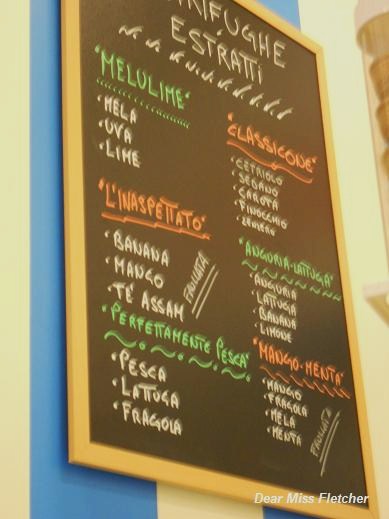 RIFUGHE
E
ESTRATTI
"MELULIME"
• MELA
• UVA
• LIME
"L'INASPETTATO"
• BANANA
• MANGO
• TE' ASSAM
FRULLATA
"PERFETTAMENTE PESCA"
• PESCA
• LATTUGA
• FRAGOLA
"CLASSICONE"
• CETRIOLO
• SEDANO
• CAROTA
• FINOCCHIO
• ZENZERO
"ANGURIA-LATTUGA"
• ANGURIA
• LATTUGA
• BANANA
• LIMONE
"MANGO-MENTA"
• MANGO
• FRAGOLA
• MELA
• MENTA
FRULLATA
Dear Miss Fletcher